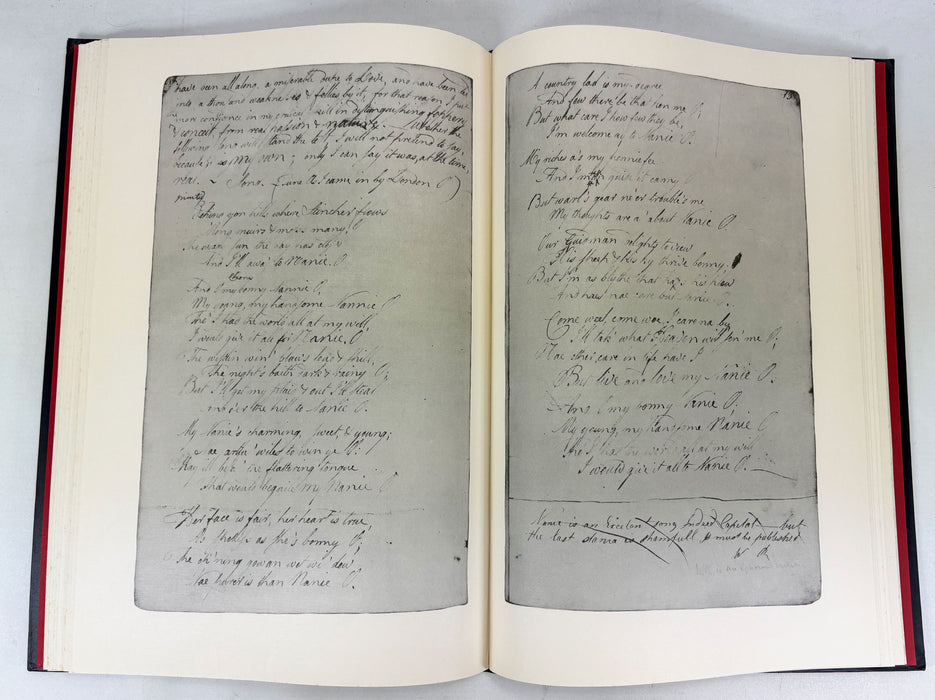 I have been all along, a miserable dupe to Love, and have been led
into a thousand weaknesses & follies by it, for that reason I put
the more confidence in my critical skill in distinguishing foppery
& conceit, from real passion & nature. Whether the
following song will stand the test, I will not pretend to say,
because it is my own; only I can say it was, at the time,
real.
Song. Tune As I came in by London O
printed
Behind yon hills where Stincher flows
'Mang muirs & mosses many, O
The weary sun the day has clos'd
And I'll awa' to Nanie O.
And O my bonny Nannie O,
My young, my handsome Nannie O
Tho' I had the world all at my will,
I would give it all for Nanie, O
The westlin win' blaws loud & shill,
The night's baith mirk & rainy O;
But I'll get my plaid & out I'll steal
And o'er the hill to Nanie O.
My Nanie's charming, sweet, & young;
Nae artfu' wiles to win ye O:
May ill befa' the flattering tongue
That would beguile my Nanie O
Her face is fair, her heart is true,
As spotless as she's bonny O;
The op'ning gowan wat wi' dew
Nae purer is than Nanie O.
13
A country lad is my degree
And few there be that ken me O;
But what care I how few they be,
I'm welcome ay to Nanie O.
My riches a's my penniefee
And I maun guide it cany O
But warl's gear ne'er troubles me
My thoughts are a' about Nanie O.
Our guidman delights to view
His sheep & kye thrive bonny O
But I'm as blythe that hauds his pleugh
And has nae care but Nanie O.
Come weel, come woe, I care na by
I'll tak' what Heaven will sen' me O;
Nae other care in life have I
But live and love my Nanie O.
And O my bonny Nanie O:
My young, my handsome Nanie O
Tho' I had the world all at my will
I would give it all to Nanie O.
Nanie is an Excelent song Indeed Capital but
the last stanza is shamfull It must be published
W R